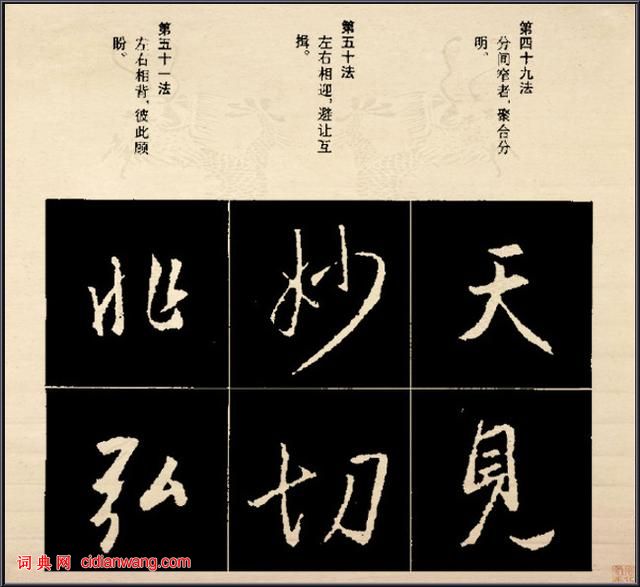 第四十九法
分间窄者，聚合分
明。
第五十法
左右相迎，避让互
揖。
第五十一法
左右相背，彼此顾
盼。
天 妙 兆
見 切 弘
词典网 cidianwang.com